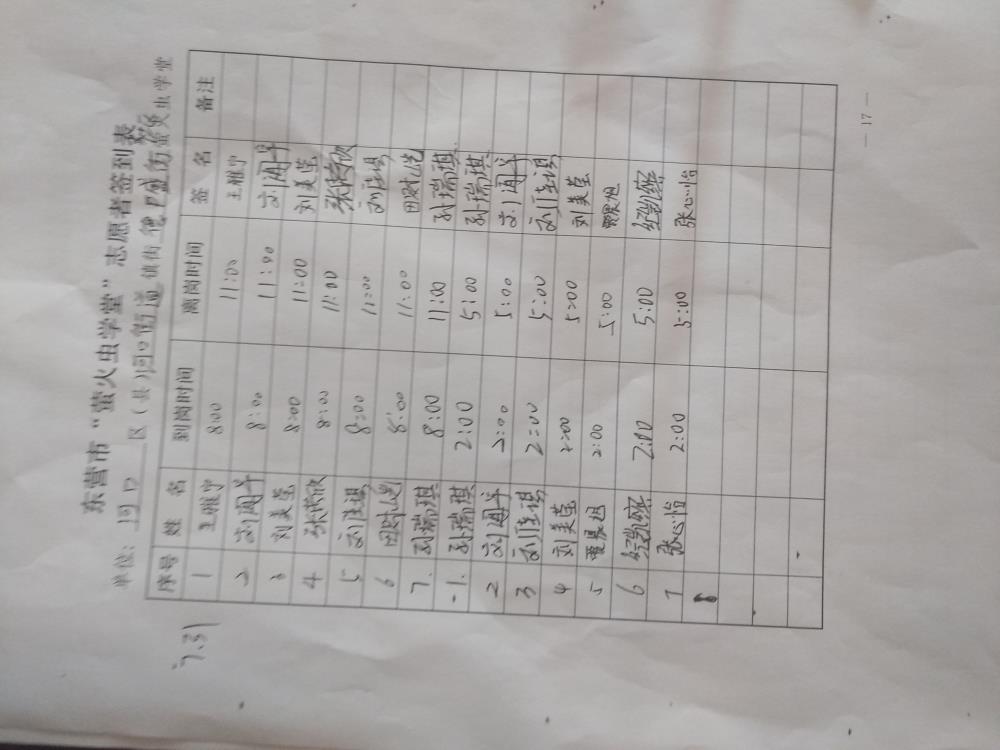 7.31
东营市“萤火虫学堂”志愿者签到表
单位: 河口 区(县)河口街道 镇街 萤火虫学堂
序号 姓 名 到岗时间 离岗时间 签 名 备注
1 王雅宁 8:00 11:00 王雅宁
2 8:00 11:00
3 刘美莹 8:00 11:00 刘美莹
4 张 欣 8:00 11:00 张 欣
5 刘佳琪 8:00 11:00 刘佳琪
6 田 8:00 11:00 田
7. 孙瑞琪 8:00 11:00 孙瑞琪
1. 孙瑞琪 2:00 5:00 孙瑞琪
2 2:00 5:00
3 刘佳琪 2:00 5:00 刘佳琪
4 刘美莹 2:00 5:00 刘美莹
5 2:00 5:00
6 2:00 5:00
7 张心怡 2:00 5:00 张心怡
— 17 —